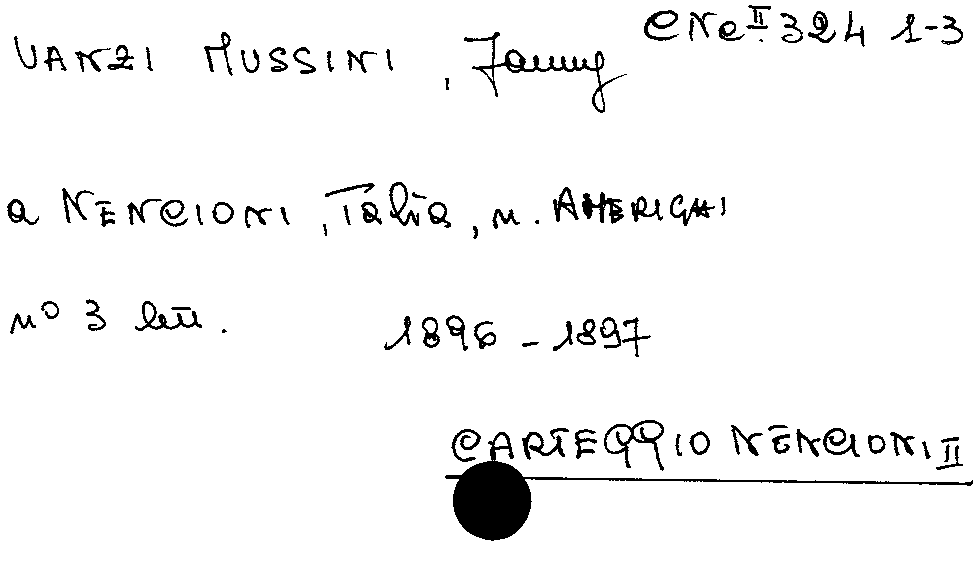 VANZI MUSSINI, Fanny CNe II. 324 1-3
a NENCIONI, Talia, n. AMERIGHI
nº 3 lett.
1896 - 1897
CARTEGGIO NENCIONI II